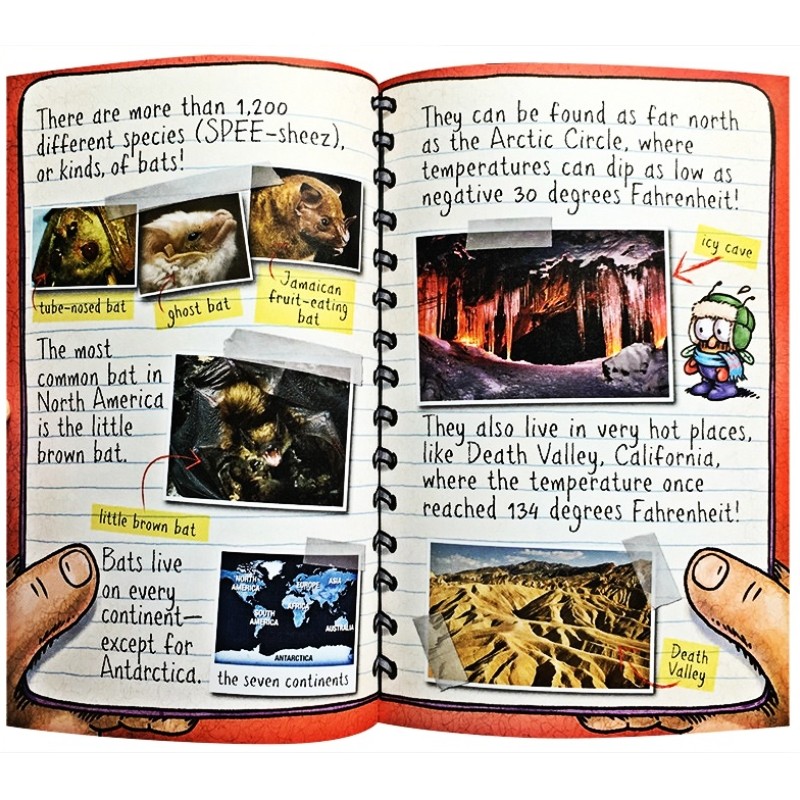 There are more than 1,200
different species (SPEE-sheez),
or kinds, of bats!
tube-nosed bat
ghost bat
Jamaican
fruit-eating
bat
The most
common bat in
North America
is the little
brown bat.
little brown bat
Bats live
on every
continent—
except for
Antarctica.
NORTH
AMERICA
EUROPE
ASIA
AFRICA
SOUTH
AMERICA
AUSTRALIA
ANTARCTICA
the seven continents
They can be found as far north
as the Arctic Circle, where
temperatures can dip as low as
negative 30 degrees Fahrenheit!
icy cave
They also live in very hot places,
like Death Valley, California,
where the temperature once
reached 134 degrees Fahrenheit!
Death
Valley